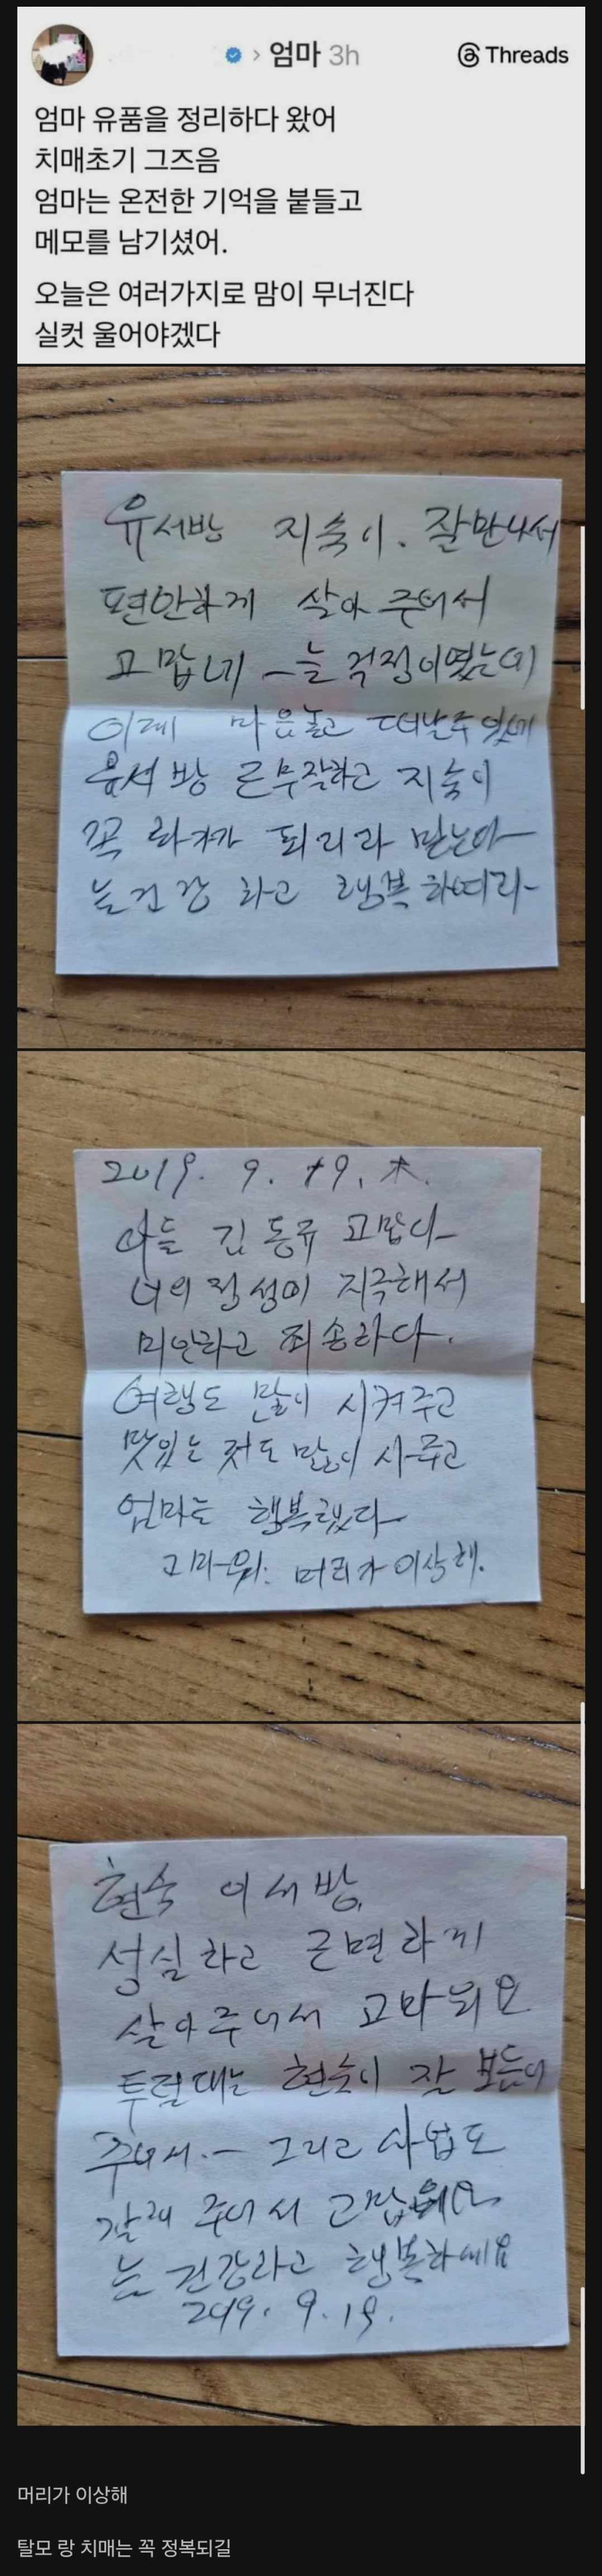 엄마 3h
Threads
엄마 유품을 정리하다 왔어
치매초기 그즈음
엄마는 온전한 기억을 붙들고
메모를 남기셨어.
오늘은 여러가지로 맘이 무너진다
실컷 울어야겠다
유서방 지숙이. 잘만나서
편안하게 살아 주어서
고맙네 늘 걱정이였는데
이제 마음놓고 떠날수 있네
유서방 근무잘하고 지숙이
꼭 화가가 되리라 믿는다
늘건강 하고 행복하여라
2019. 9. 19. 木.
아들 김동규 고맙다
너의 정성이 지극해서
미안하고 죄송하다.
여행도 많이 시켜주고
맛있는 것도 많이 사주고
엄마는 행복했다
고마워. 머리가 이상해.
현숙 이서방.
성실하고 근면하게
살아주어서 고마워요
투덜대는 현숙이 잘 보듬어
주어서. 그리고 사업도
잘해 주어서
늘 건강하고 행복하세요
2019. 9. 19.
머리가 이상해
탈모 랑 치매는 꼭 정복되길